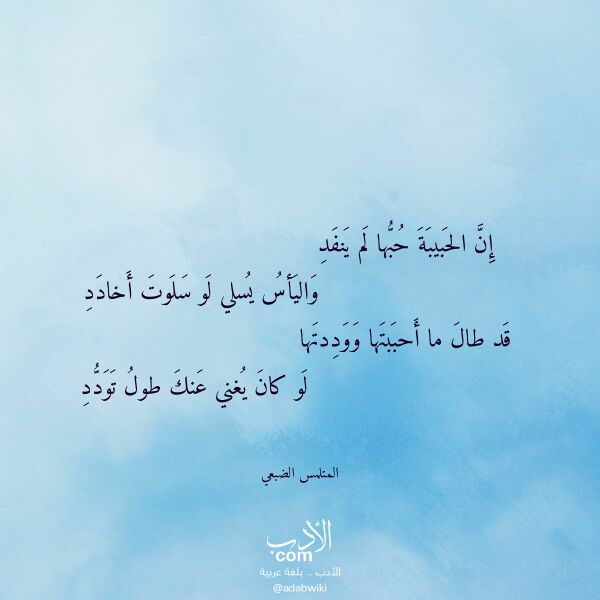 إِنَّ الحَبيبَةَ حُبُّها لَم يَنفَدِ
وَاليَأسُ يُسلي لَو سَلَوتَ أَخادَدِ
قَد طالَ ما أَحبَبتَها وَوَدِدتَها
لَو كانَ يُغني عَنكَ طولُ تَوَدُّدِ
المتلمس الضبعي
الأدب
com
الأدب .. بلغة عربية
@adabwiki